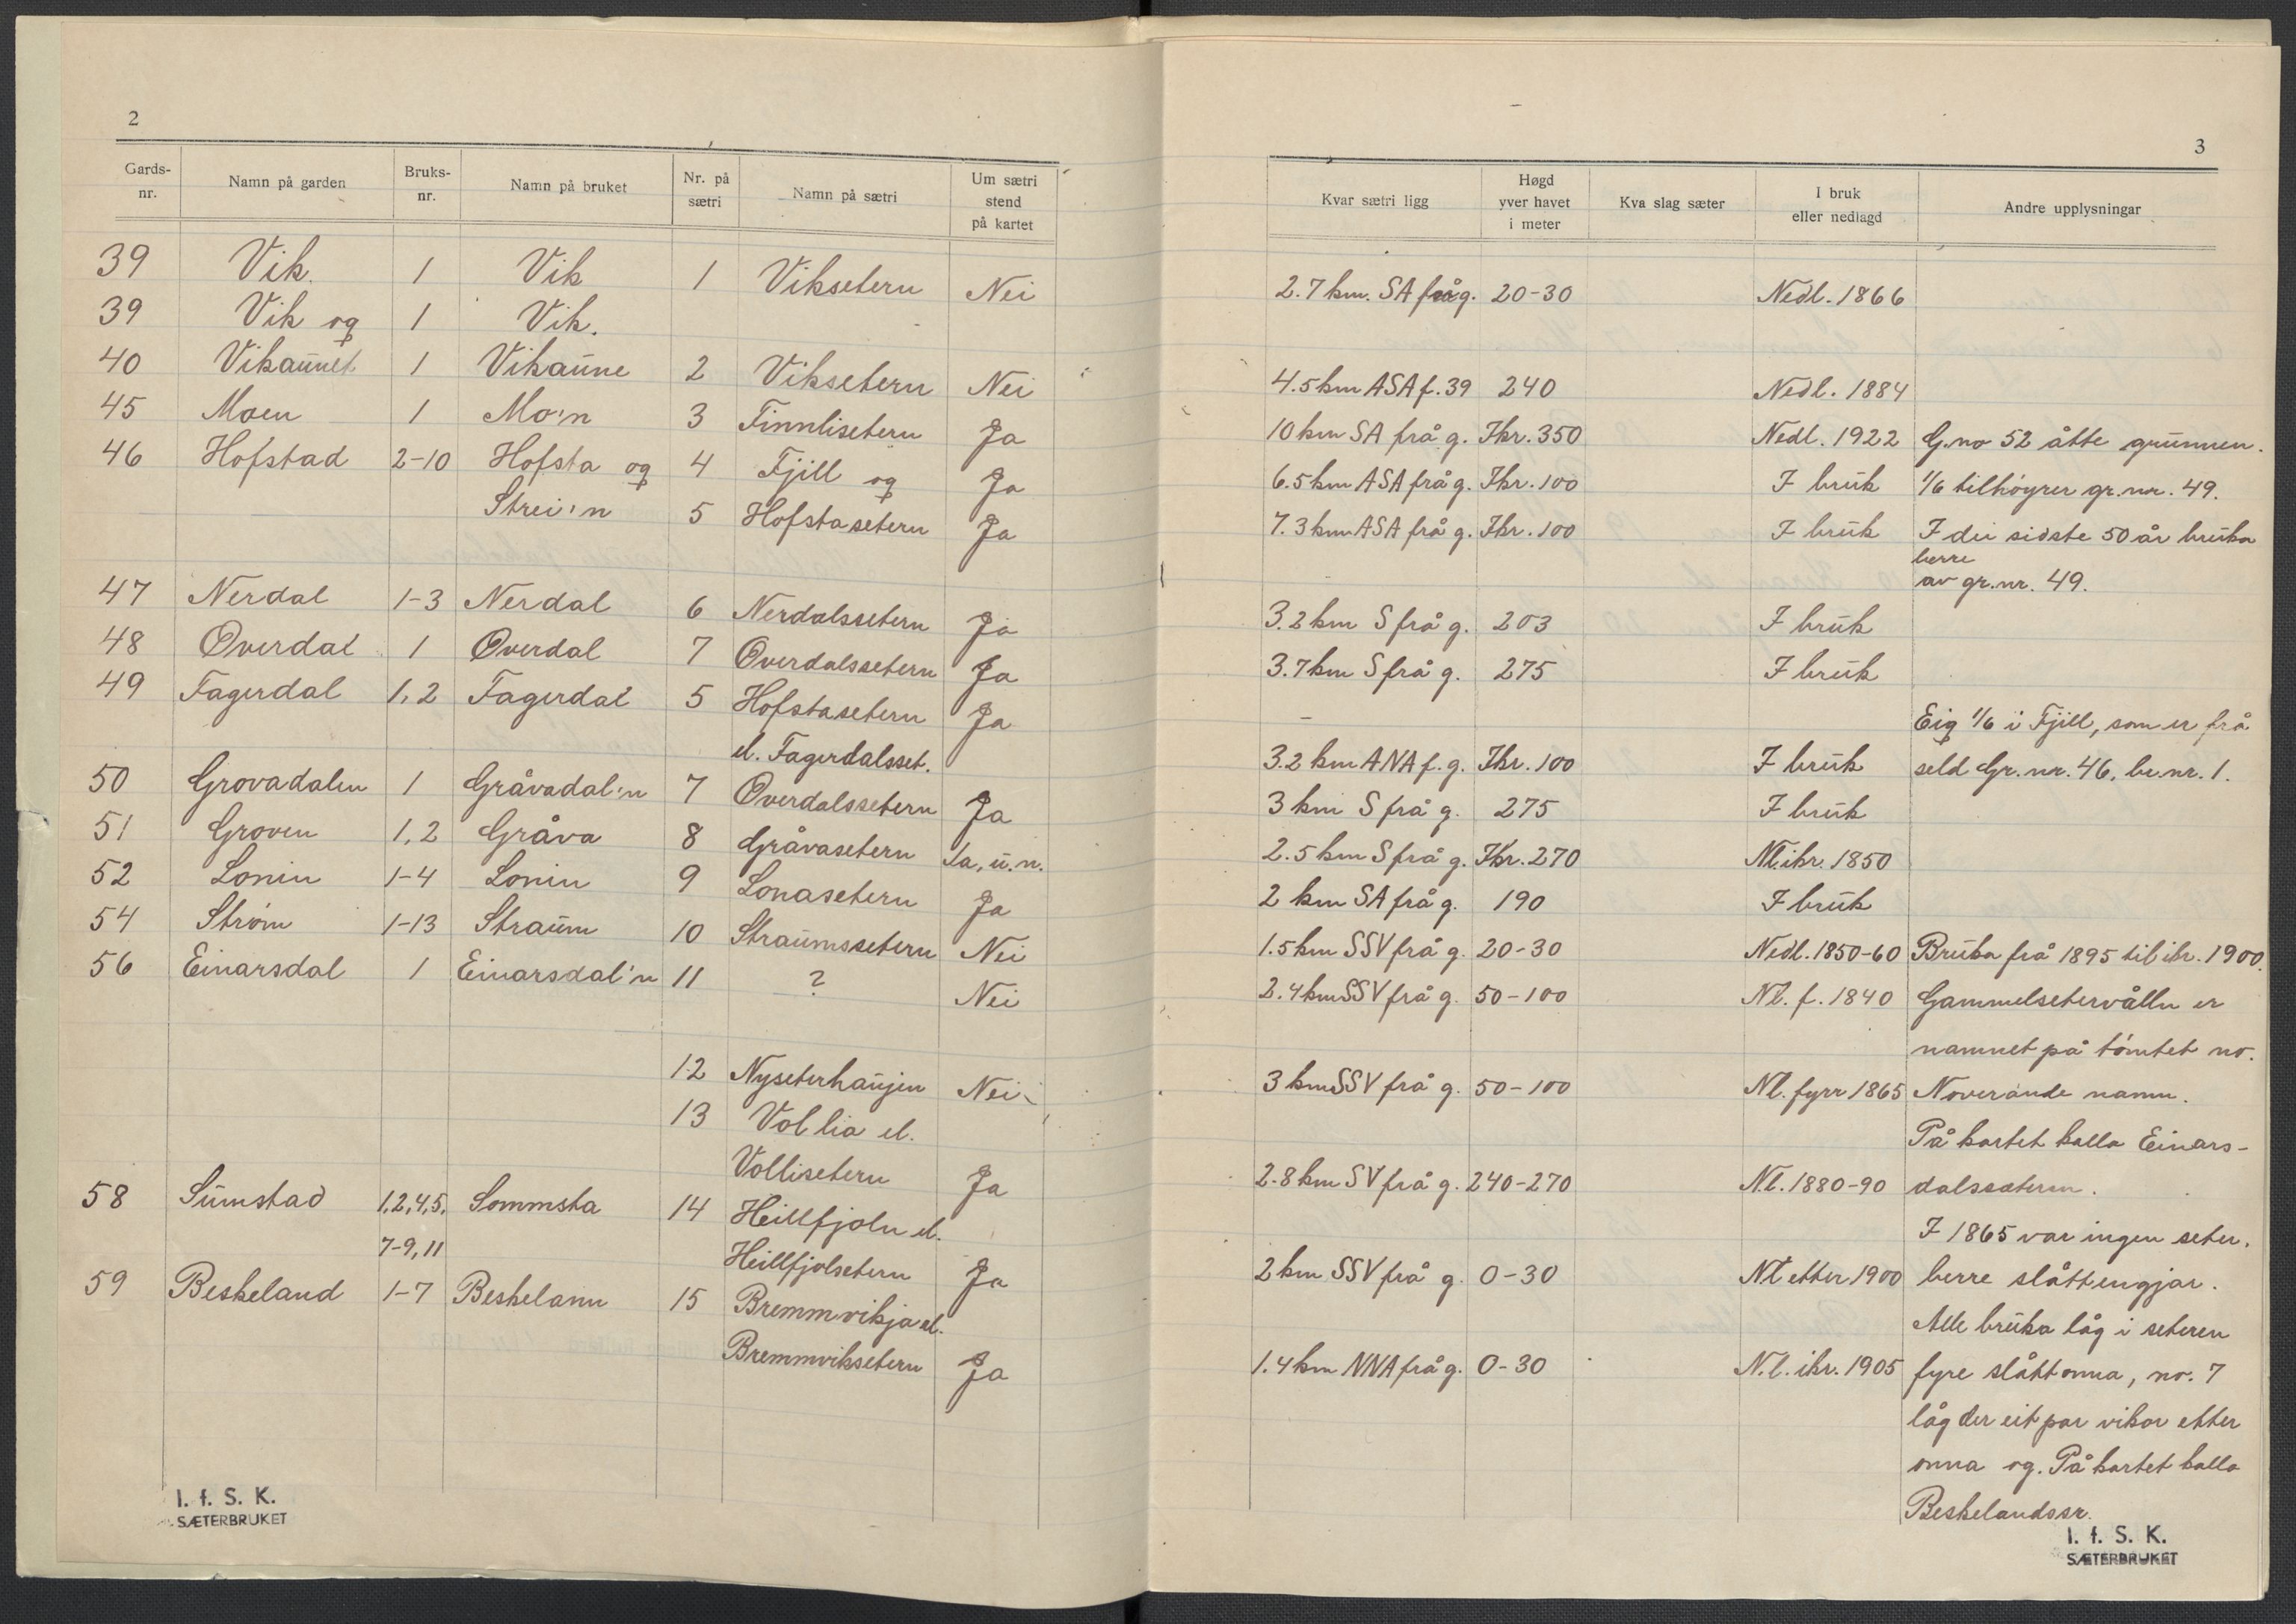 2
Gards-nr. Namn på garden Bruks-nr. Namn på bruket Nr. på sætri Namn på sætri Um sætri stend på kartet
39 Vik. 1 Vik 1 Viksetern Nei
39 Vik og 1 Vik.
40 Vikaunet 1 Vikaune 2 Viksetern Nei
45 Moen 1 Mo'n 3 Finnlisetern Ja
46 Hofstad 2-10 Hofsta og 4 Fjill og Ja
Strei'n 5 Hofstasetern Ja
47 Nerdal 1-3 Nerdal 6 Nerdalssetern Ja
48 Overdal 1 Overdal 7 Overdalssetern Ja
49 Fagerdal 1,2 Fagerdal 5 Hofstasetern Ja
el. Fagerdalsset.
50 Grovadalen 1 Gråvadal'n 7 Overdalssetern Ja
51 Groven 1,2 Gråva 8 Gråvasetern Ja, u.n.
52 Lonin 1-4 Lonin 9 Lonasetern Ja
54 Strøm 1-13 Straum 10 Straumssetern Nei
56 Einarsdal 1 Einarsdal'n 11 ? Nei
12 Nyseterhaujen Nei
13 Vollia el.
Vollisetern Ja
58 Sumstad 1,2,4,5, Sommsta 14 Heillfjoln el.
7-9,11 Heillfjolsetern Ja
59 Beskeland 1-7 Beskelann 15 Bremmvikja el.
Bremmviksetern Ja
I. f. S. K.
SÆTERBRUKET
3
Kvar sætri ligg Høgd yver havet i meter Kva slag sæter I bruk eller nedlagd Andre upplysningar
2.7 km. SA frå g. 20-30 Nedl. 1866
4.5 km ASA f. 39 240 Nedl. 1884
10 km SA frå g. Ikr. 350 Nedl. 1922 G.no 52 åtte grunnen.
6.5 km ASA frå g. Ikr. 100 I bruk 1/6 tilhøyrer gr.nr. 49.
7.3 km ASA frå g. Ikr. 100 I bruk I dei sidste 50 år bruka
berre
av gr.nr. 49.
3.2 km S frå g. 203 I bruk
3.7 km S frå g. 275 I bruk
Eig 1/6 i Fjill, som er frå
3.2 km ANA f. g. Ikr. 100 I bruk seld Gr. nr. 46, br.nr. 1.
3 km S frå g. 275 I bruk
2.5 km S frå g. Ikr. 270 Nl. ikr. 1850
2 km SA frå g. 190 I bruk
1.5 km SSV frå g. 20-30 Nedl. 1850-60 Bruka frå 1895 til ikr. 1900.
2.4 km SSV frå g. 50-100 Nl. f. 1840 Gammelsetervålln er
namnet på tomtet no.
3 km SSV frå g. 50-100 Nl. fyrr 1865 Noverande namn.
På kartet kalla Einars-
2.8 km SV frå g. 240-270 Nl. 1880-90 dalssætern.
I 1865 var ingen seter,
2 km SSV frå g. 0-30 Nl etter 1900 berre slåttengjar.
Alle bruka låg i seteren
1.4 km NNA frå g. 0-30 N.l. ikr. 1905 fyre slåttonna, no. 7
låg der eit par vikor etter
onna og. På kartet kalla
Beskelandssr.
I. f. S. K.
SÆTERBRUKET